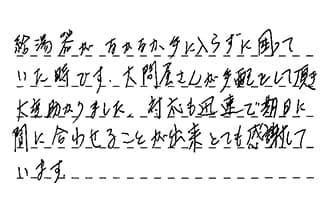 給湯器がなかなか手に入らずに困って
いた時です。大問屋さんが手配をして頂き
大変助かりました。対応も迅速で期日に
間に合わせることが出来とても感謝して
います。